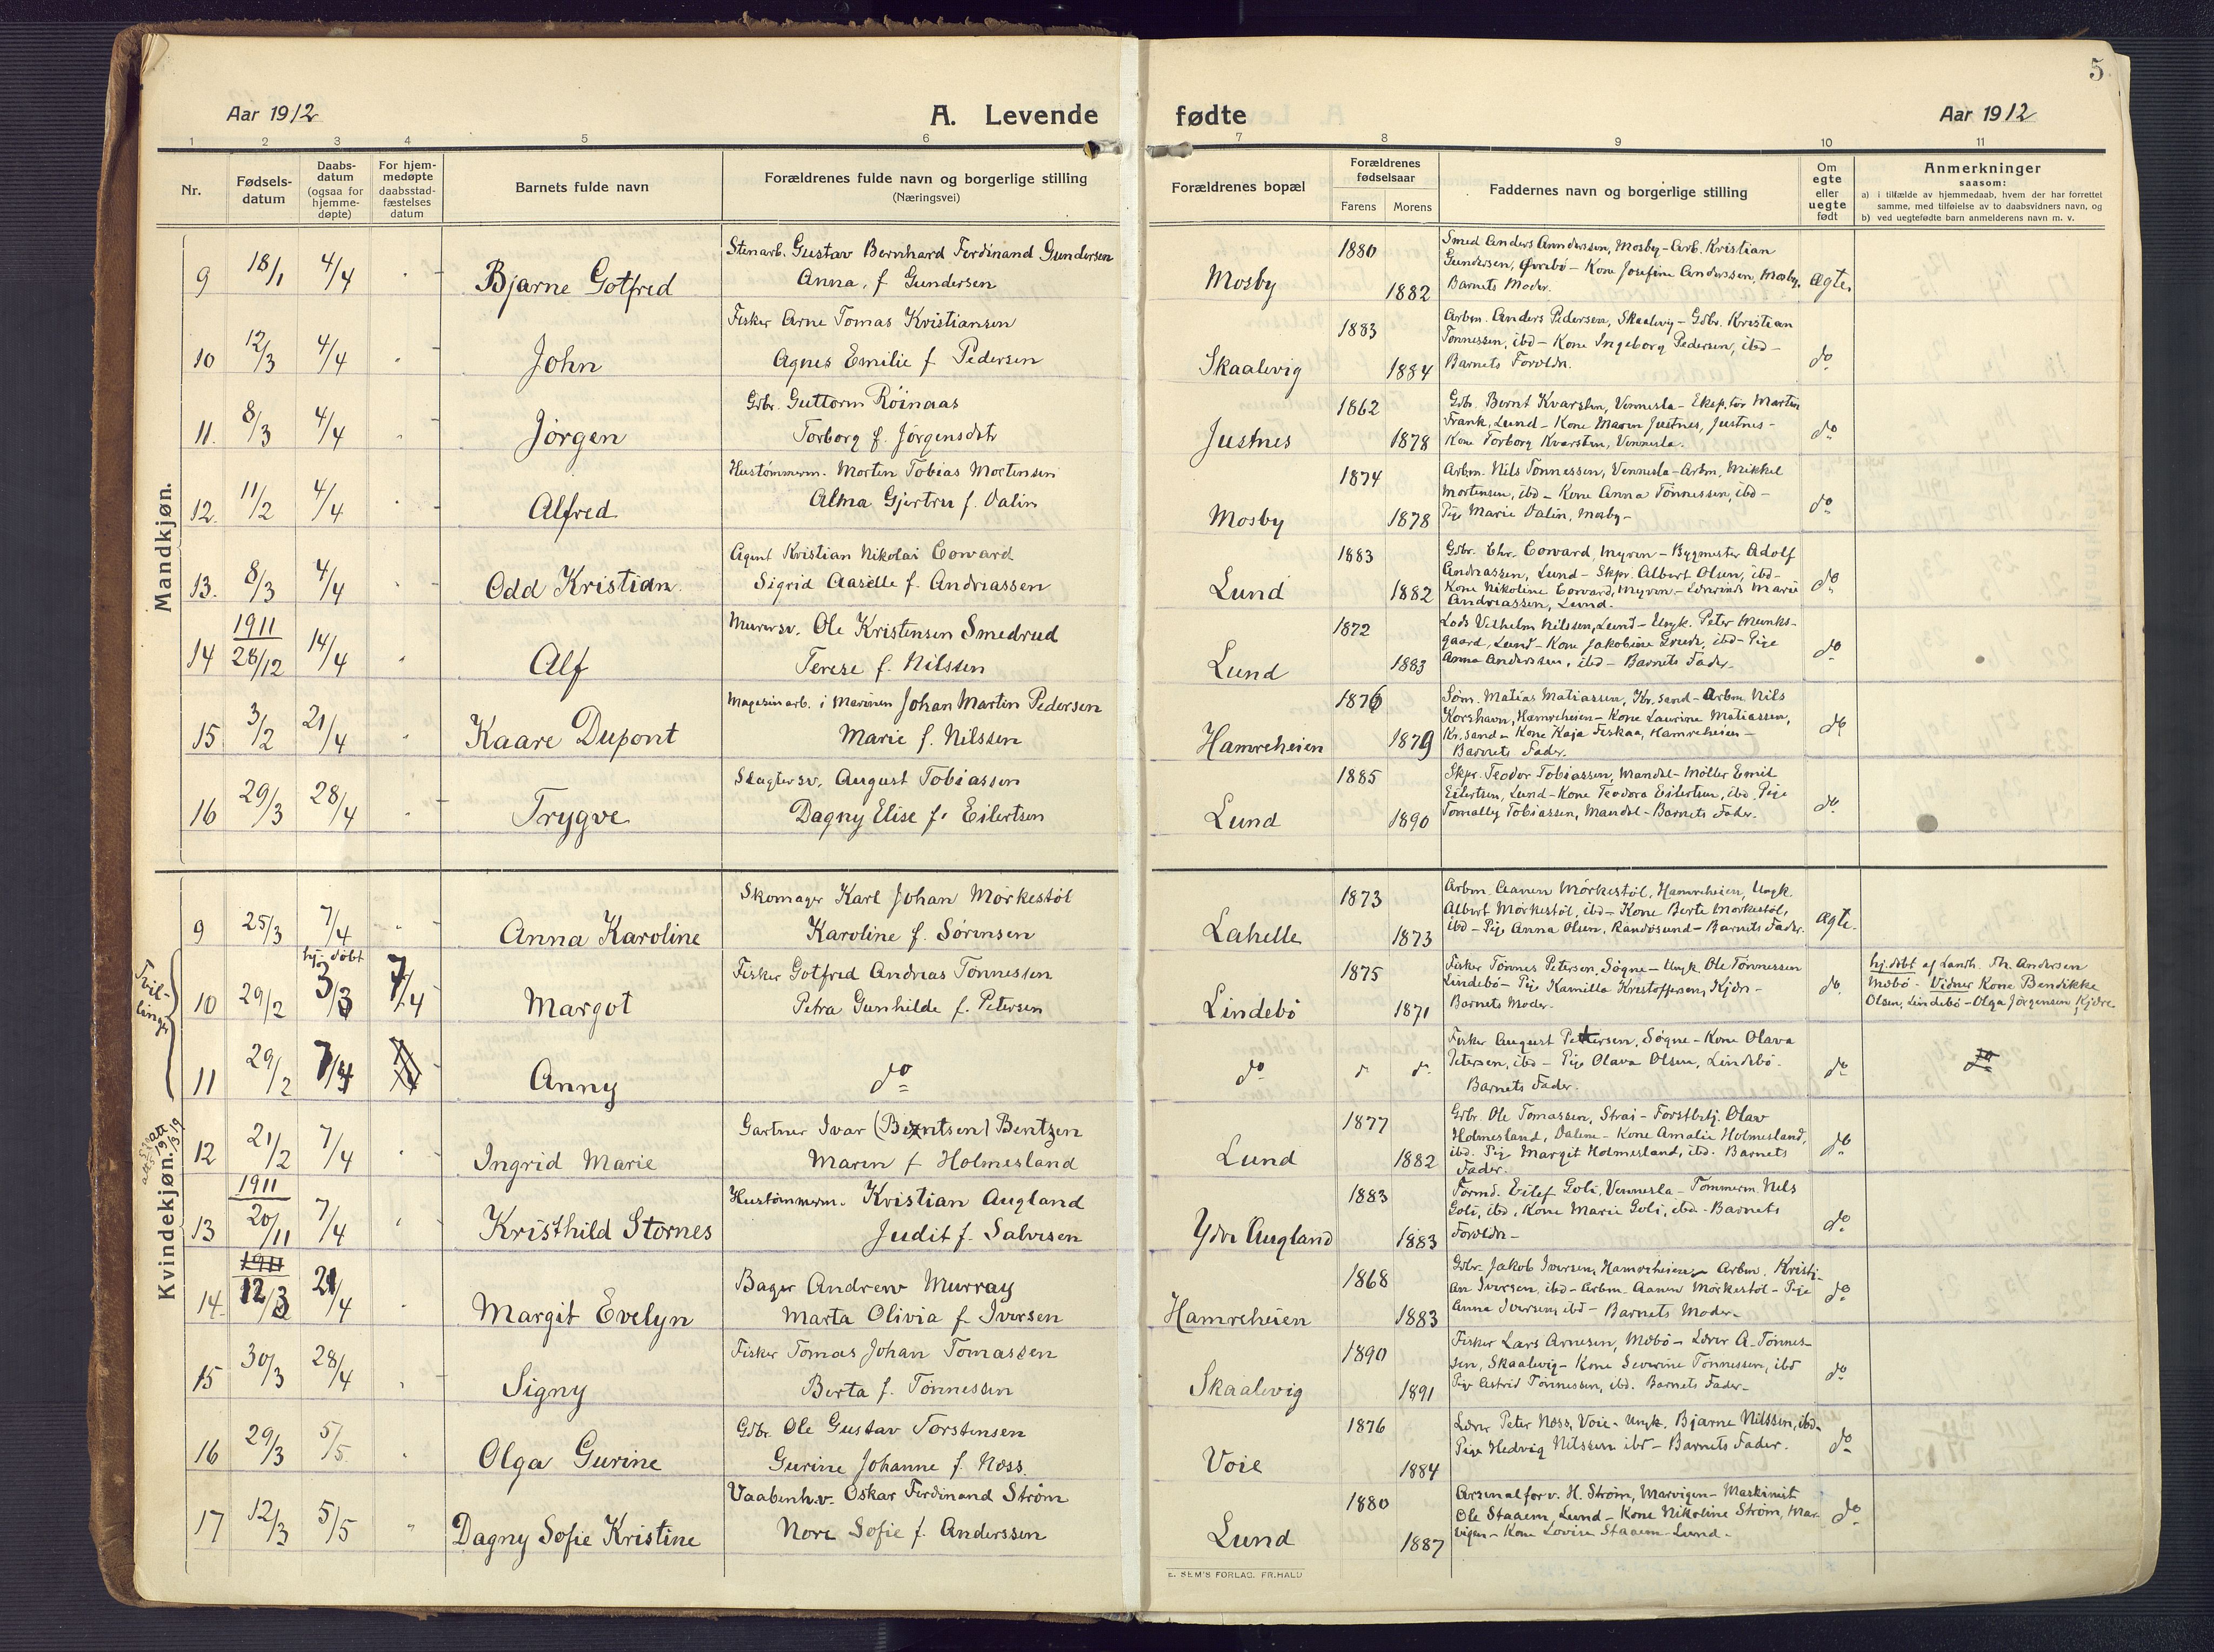 5
Aar 1912
A. Levende fødte
Aar 1912
1 2 3 4 5 6 7 8 9 10 11
Nr.
Fødsels-
datum
Daabs-
datum
(ogsaa for
hjemme-
døpte)
For hjem-
medøpte
daabsstad-
fæstelses
datum
Barnets fulde navn
Forældrenes fulde navn og borgerlige stilling
(Næringsvei)
Forældrenes bopæl
Forældrenes
fødselsaar
Farens Morens
Faddernes navn og borgerlige stilling
Om
egte
eller
uegte
født
Anmerkninger
saasom:
a) i tilfælde av hjemmedaab, hvem der har forrettet
samme, med tilføielse av to daabsvidners navn, og
b) ved uegtefødte barn anmelderens navn m. v.
Mandkjøn.
9 18/1 4/4 Bjarne Gotfred
Stenarb. Gustav Bernhard Ferdinand Gundersen
Anna, f Gundersen
Mosby 1880 1882
Smed Anders Anndersen, Mosby - Arb. Kristian
Gundersen, Øvrebö - Kone Josefine Anderssen, Mosby.
Barnets Moder.
Ægte.
10 12/3 4/4 John
Fisker Arne Tomas Kristiansen
Agnes Emilie f Pedersen
Skaalevig 1883 1884
Arbm. Anders Pedersen, Skaalevig - Gdbr. Kristian
Tönnessen, ibd - Kone Ingeborg Pedersen, ibd -
Barnets Foreldr.
do
11. 8/3 4/4 Jörgen
Gdbr. Guttorm Röinaas
Torborg f. Jörgensdtr
Justnes 1862 1878
Gdbr. Bernt Kvarsten, Vennesla - Eksp.tör Martin
Frank, Lund - Kone Maren Justnes, Justnes -
Kone Torborg Kvarsten, Vennesla.
do
12. 11/2 4/4 Alfred
Hustömmerm. Morten Tobias Mortensen
Alma Gjertru f. Dalin
Mosby 1874 1878
Arbm. Nils Tönnessen, Vennesla - Arbm. Mikkel
Mortensen, ibd - Kone Anna Tönnessen, ibd -
Pige Marie Dalin, Mosby -
do
13. 8/3 4/4 Odd Kristian
Agent Kristian Nikolai Coward
Sigrid Aaselle f. Andreassen
Lund 1883 1882
Gdbr. Chr. Coward, Myren - Bygmester Adolf
Andreassen, Lund - Skpr. Albert Olsen, ibd -
Kone Nikoline Coward, Myren - Marie
Andreassen, Lund.
do
14 1911 28/12 14/4 Alf
Murersv. Ole Kristensen Smedrud
Terese f. Nilsen
Lund 1872 1883
Lods Vilhelm Nilssen, Lund - Ungk. Peter Munks-
gaard, Lund - Kone Jakobine ibd - Pige
Anna Anderssen, ibd - Barnets Fader.
do
15 3/2 21/4 Kaare Dupont
Magasinarb. i Marinen Johan Martin Pedersen
Marie f. Nilssen
Hamreheien 1876 1879
Söm. Matias Matiassen, Kr.sand - Arbm. Nils
Korshavn, Hamreheien - Kone Laurine Matiassen,
Kr.sand - Kone Kaja Fiskaa, Hamreheien -
Barnets Fader.
do
16 29/3 28/4 Trygve
Slagtersv. August Tobiassen
Dagny Elise f. Eilertsen
Lund 1885 1890
Skpr. Teodor Tobiassen, Mandal - Möller Emil
Eilertsen, Lund - Kone Teodora Eilertsen, ibd. Pige
Tomally Tobiassen, Mandal - Barnets Fader.
do
Kvindekjøn.
9 25/3 7/4 Anna Karoline
Skomager Karl Johan Mörkestöl
Karoline f. Sörensen
Lahelle 1873 1873
Arbm. Aanen Mörkestöl, Hamreheien, Ungk.
Albert Mörkestöl, ibd - Kone Berte Mörkestöl,
ibd - Pige Anna Olsen, Randösund - Barnets Fader.
Ægte.
Tvil-
linger
10 29/2 hj. döbt 3/3 7/4 Margot
Fisker Gotfred Andreas Tönnessen
Petra Gunhilde f. Petersen
Lindebö 1875 1871
Fisker Tönnes Petersen, Sögne - Ungk. Ole Tönnessen
Lindebö - Pige Kamilla Kristoffersen, Kjöre -
Barnets Moder.
do.
hj. döbt af Landh. Th. Andersen
Mebö - Vidner Kone Bendikke
Olsen, Lindebö - Olga Jörgensen, Kjöre
11 29/2 7/4 Anny
do
do
Fisker August Pettersen, Sögne - Kone Olava
Petersen, ibd - Pige Olava Olsen, Lindebö.
Barnets Fader.
do
do
12 21/2 7/4 Ingrid Marie
Gartner Ivar (Berntsen) Bentzen
Maren f Holmesland
Lund 1877 1882
Gdbr. Ole Tomassen, Strai - Forstbetj. Olav
Holmesland, Dalene - Kone Amalie Holmesland,
ibd. Pige Margit Holmesland, ibd. Barnets
Fader.
do
13 1911 20/11 7/4 Kristhild Stornes
Hustömmerm. Kristian Augland
Judit f. Salvesen
Ydre Augland 1883 1883
Formd. Eilef Goli, Vennesla - Tömmerm. Nils
Goli, ibd, Kone Marie Goli, ibd - Barnets
Foreldr -
do
14. 1911 12/3 21/4 Margit Evelyn
Bager Andrew Murray
Marta Olivia f Iversen
Hamreheien 1868 1883
Gdbr. Jakob Iversen, Hamreheien - Arbm. Kristi-
an Iversen, ibd - Arbm. Aanen Mörkestöl - Pige
Anna Iversen, ibd - Barnets Moder -
do
15 30/3 28/4 Signy
Fisker Tomas Johan Tomassen
Berta f. Tönnessen
Skaalevig 1890 1891
Fisker Lars Arnesen, Mebö - Lærer A. Tönnes-
sen, Skaalevig - Kone Severine Tönnessen, ibd
Pige Astrid Tönnessen, ibd. Barnets Fader -
do
16 29/3 5/5 Olga Gurine
Gdbr. Ole Gustav Torstensen
Gurine Johanne f. Næss.
Voie 1876 1884
Lærer Peter Næss, Voie - Ungk. Bjarne Nilssen, ibd -
Pige Hedvig Nilssen ibd - Barnets Fader.
do
17 12/3 5/5 Dagny Sofie Kristine
Vaabenh.v. Oskar Ferdinand Ström
Nora Sofie f. Anderssen
Lund 1880 1887
Arsenalforv. H. Ström, Marvigen - Maskinist
Ole Staaem, Lund - Kone Nikoline Ström, Mar-
vigen - Kone Lovise Staaem - Lund.
do
E. SEM'S FORLAG. FR.HALD